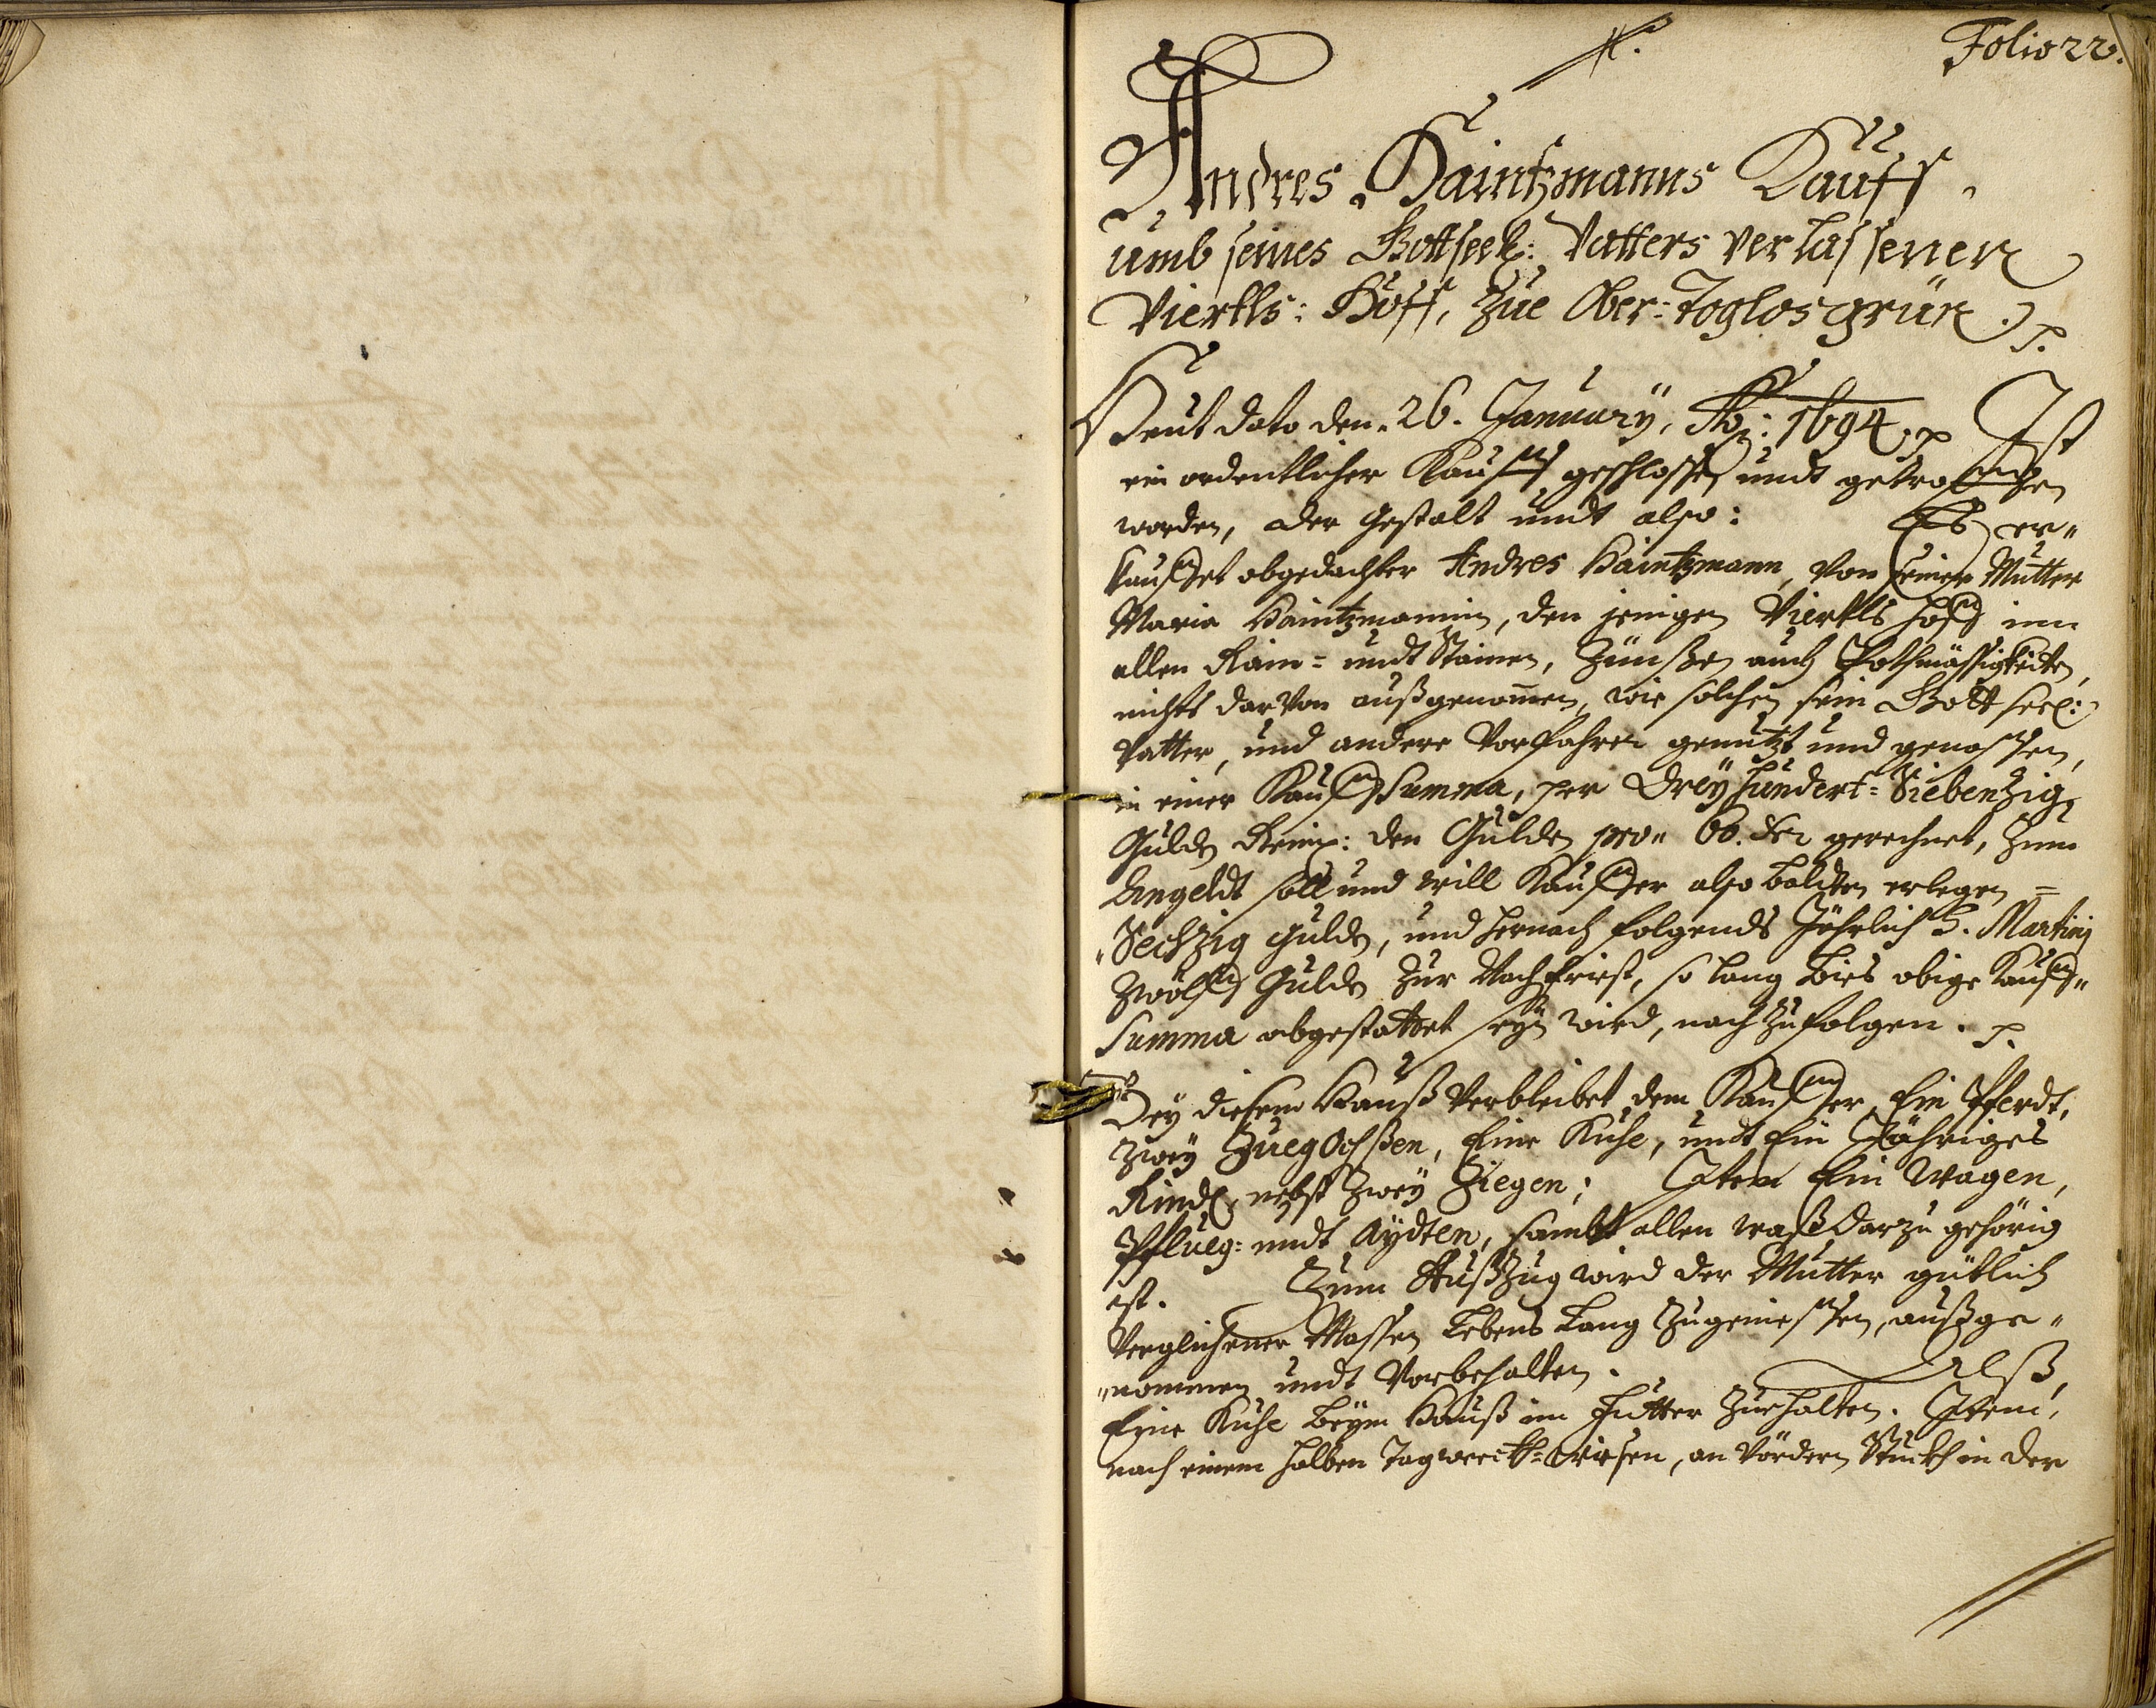 Folio 22.
Andres Haintzmanns Kauff,
umb seines Gottseel: Vatters verlassenen
Viertls: Hoff, Zue Ober-Toglosgrün. p.
Heut dato den 26. January, Ao: 1694. p Ist
ein ordentlicher Kauff geschlossen undt getroffen
worden, der gestalt undt also: Es er„
kauffet obgedachter Andres Haintzmann, von seiner Mutter
Maria Haintzmannin, den jenigen Viertls hoff inn
allen Rain- undt Stainen, Zünßen auch Pothmässigkeiten,
nichts darvon außgenom̅en, wie solchen sein Gottseel:
Vatter, und andere Vorfahren genutzt und genossen,
in einer Kauff Summa, per Dreyhundert-Siebenzig
Gulden Reinis: den Gulden pro„ 60. Kr gerechnet, Zum
Angeldt soll und will Kauffer also baldten erlegen =
„Sechzig gulden, und hernach folgends Jährlich S. Martinj
Zwölff Gulden Zur Nachfrist, so lang bies obige Kauff„
Summa abgestattet seyn wird, nach Zufolgen. p.
Bey diesem Hauß verbleibet dem Kauffer, Ein Pferdt,
Zwey Zueg Ochßen, Eine Kuhe, undt Ein Jähriges
Rindl, nebst Zwey Ziegen; Item Ein Wagen,
Pflueg- undt Aydten, sambt allen waß darzu gehörig
ist. Zum Außzug wird der Mutter gütlich
verglichener Massen Lebens Lang Zugeniessen, außge„
„nommen undt Vorbehalten. Alß,
Eine Kuhe beym Hauß im Futter Zuehalten. Item,
nach einem halben Tagwerckh-wiesen, an Vördern Stuckh in der